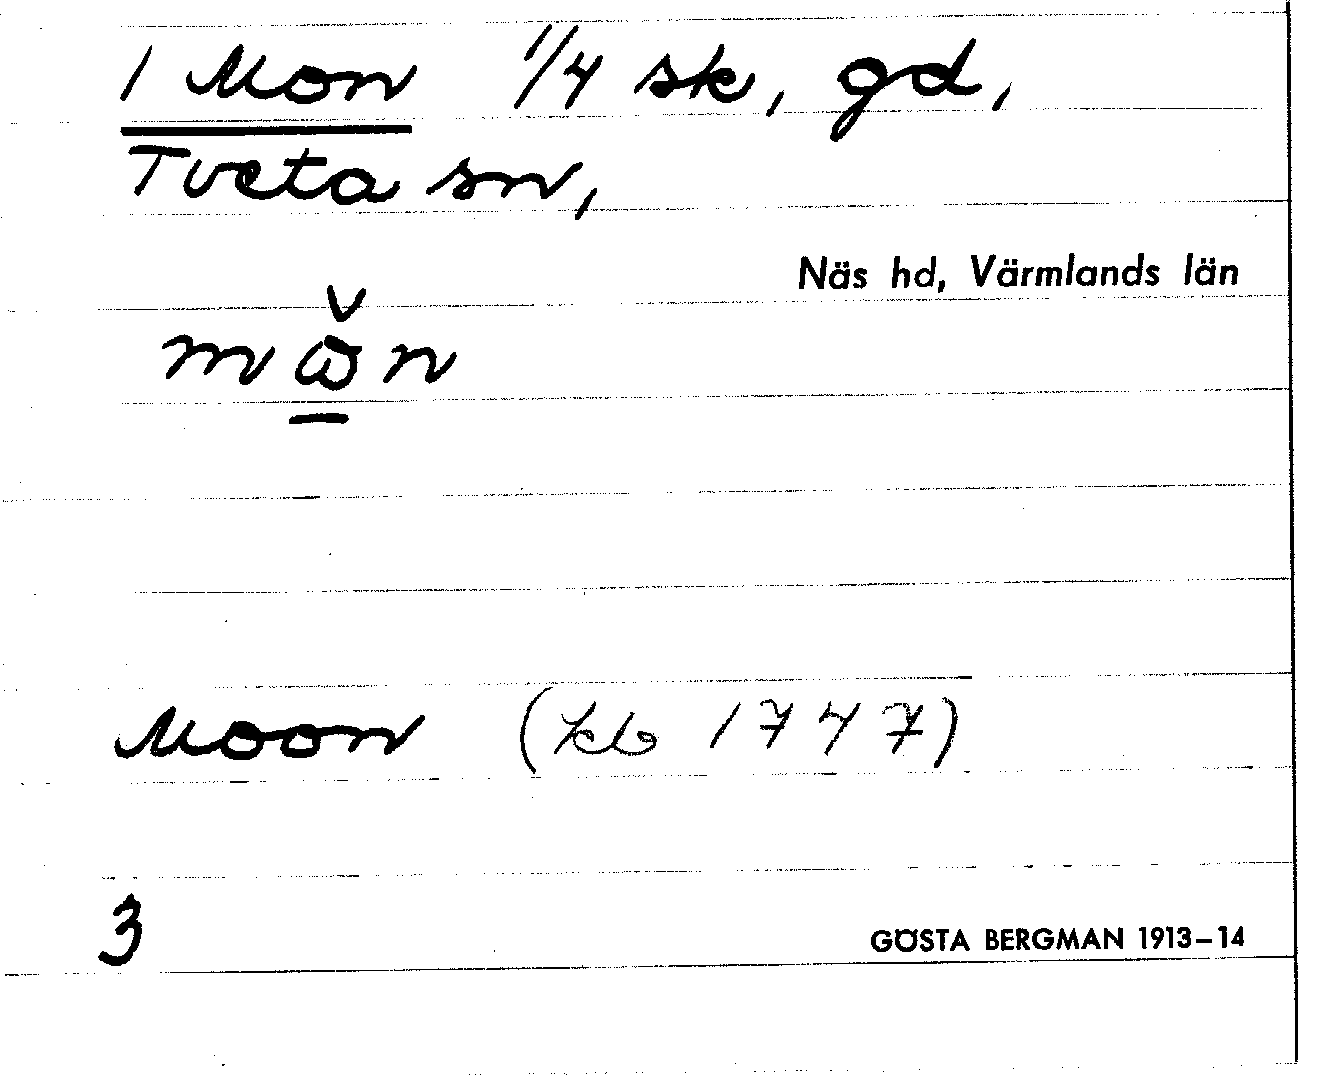 1 Mon 1/4 sk, gd,
Tveta sn,
Näs hd, Värmlands län
Moon (kb 1747)
3
GÖSTA BERGMAN 1913–14